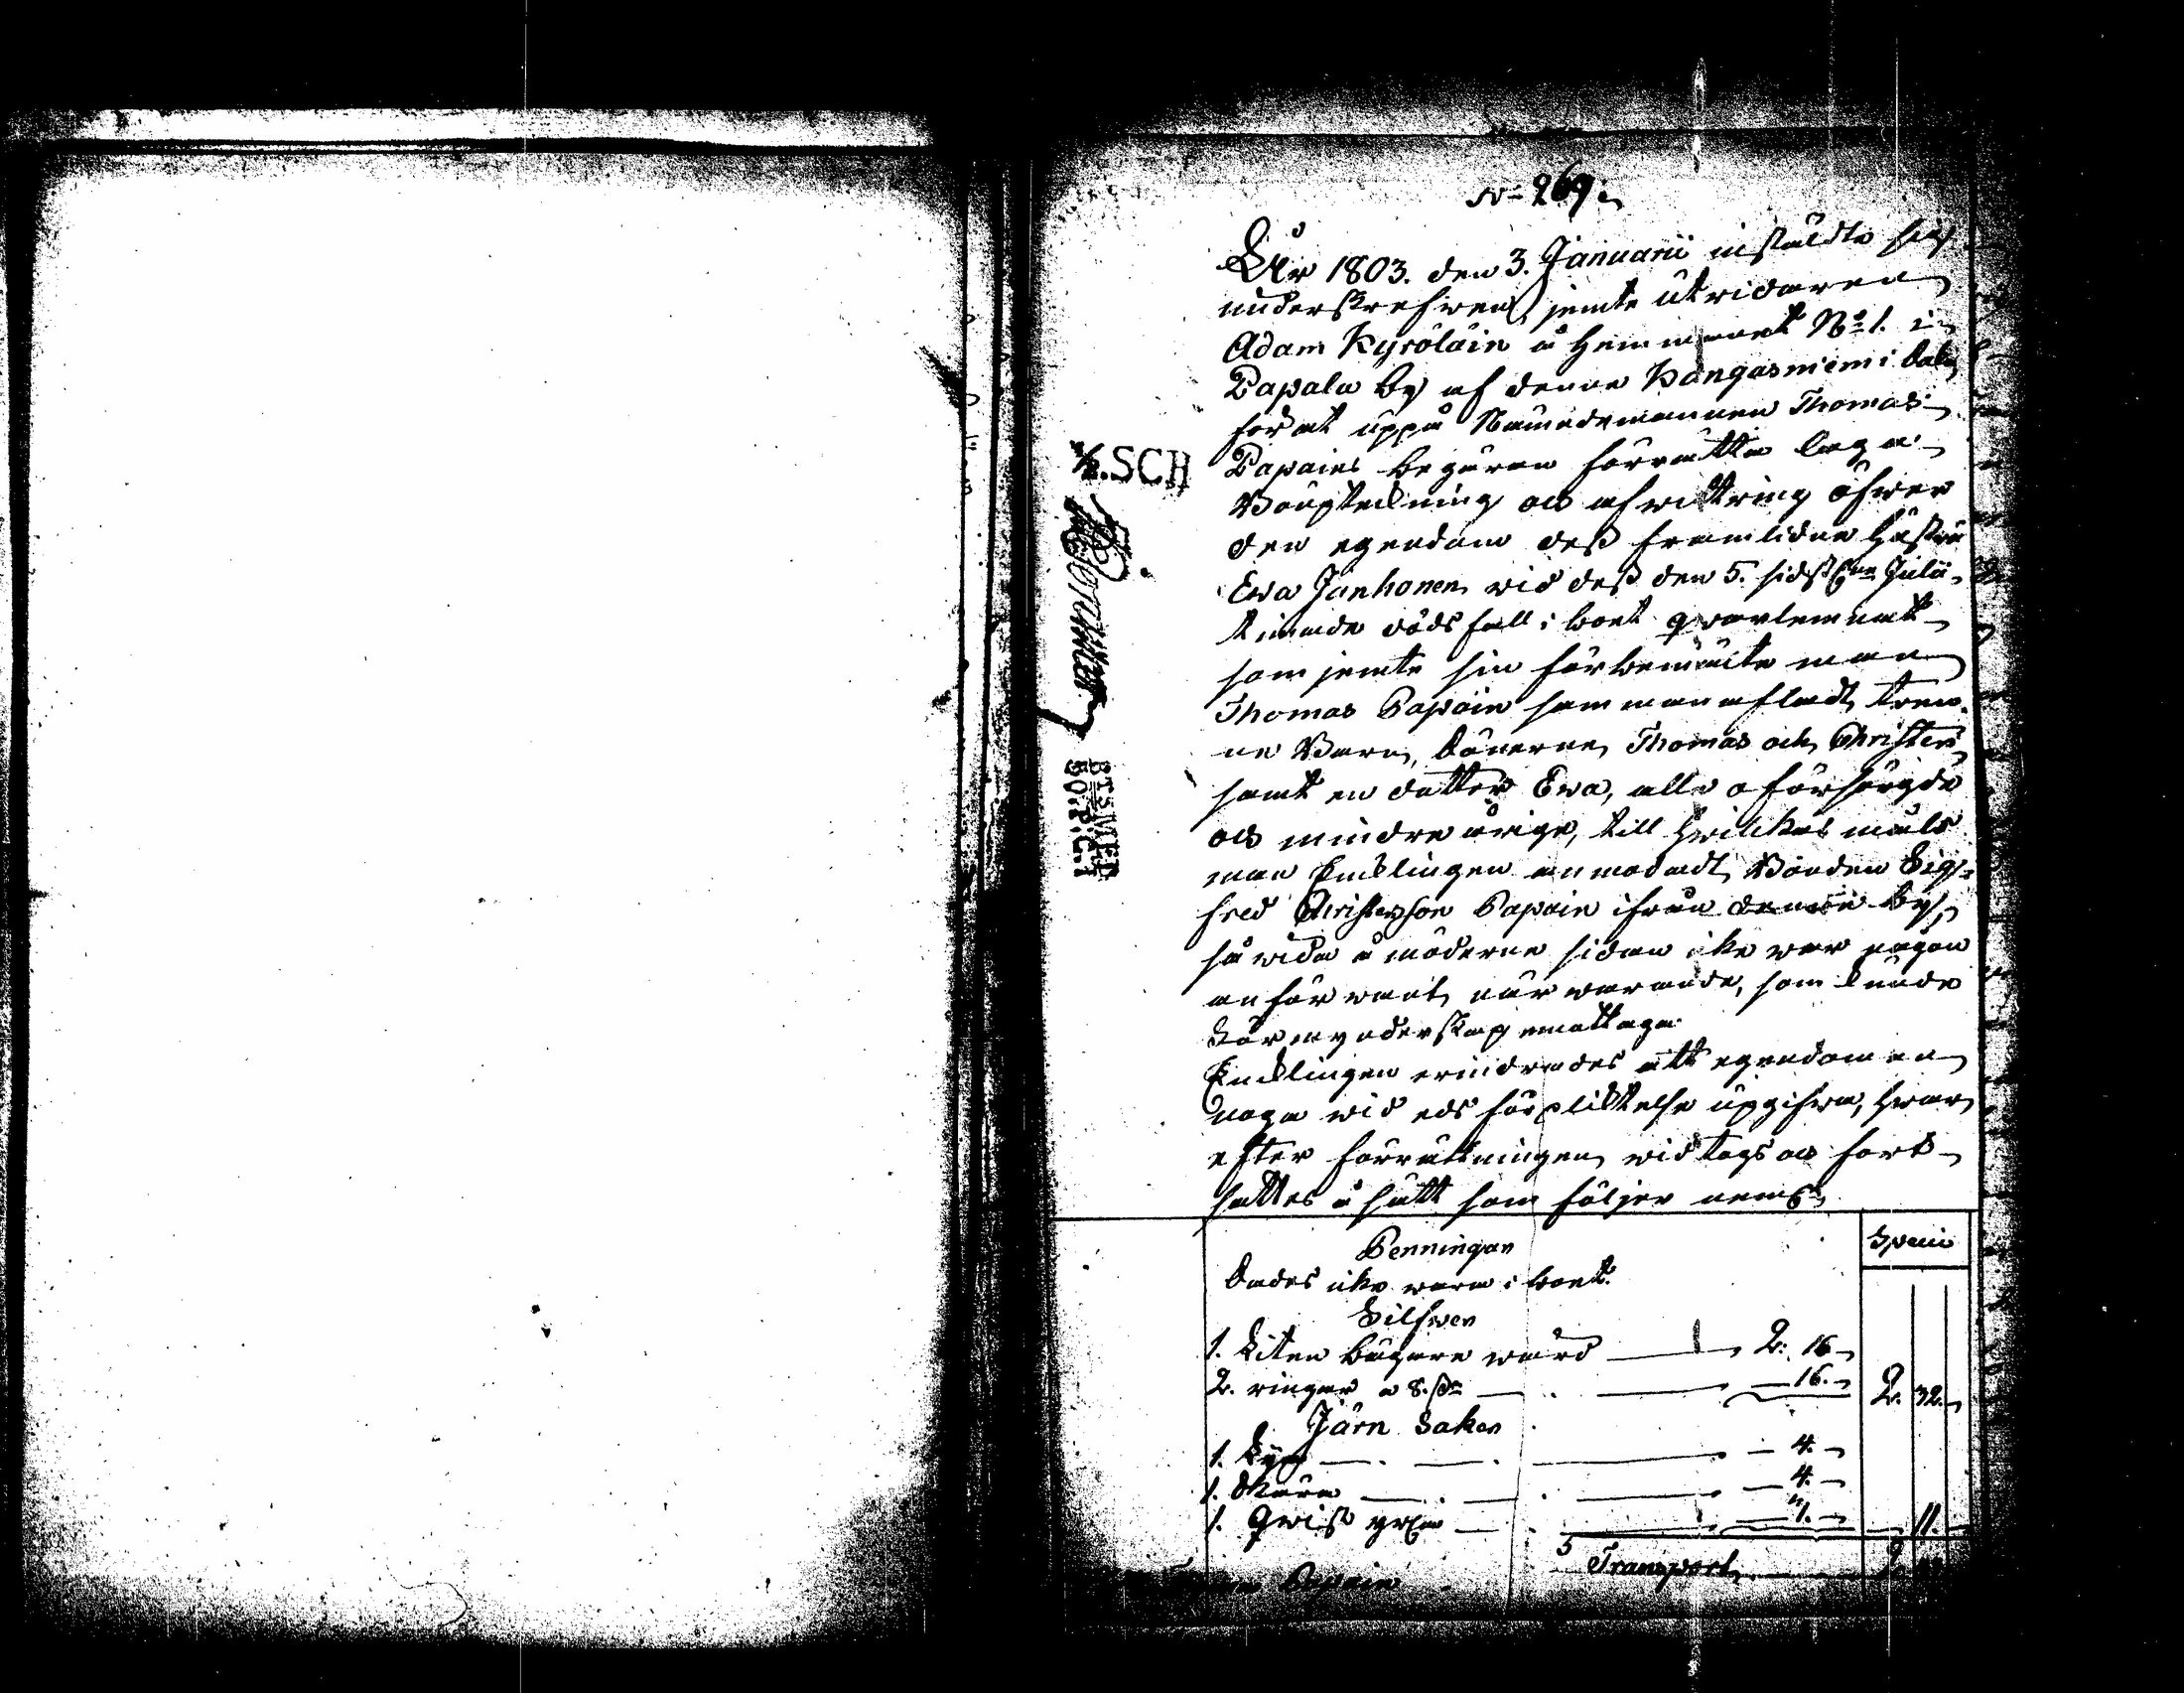 N= 269.
År 1803. den 3. Januarii instäldte sig
underskrefwen jemte utridaren
Adam Kyröläin å Hemmanet No 1. i
Papala by af denna Kangasniemi
för at uppå Nämndemannen Thomas
Papains begäran förrätta laga
Boupteckning och afwittring öfwer
den egendom dess framlidne Hustru
Ewa Janhonen wid dess den 5. sidstl. Julii
timade dödsfall i boet qvarlemnat
som jemte sin förbemälte man
Thomas Papain samman afladt tren-
ne Barn, Sönerne Thomas och Christer
samt en dotter Ewa, alla oförsörgde
och mindre årige, till hwilkas måls-
man Enklingen anmodadt Bonden Sig-
fred Christersson Papain ifrån denne by,
så wida å möderne sidan ike war någon
anförwant när warande, som kunde
Förmynderskap emottaga.
Enklingen erindrades att egendomen
noga wid eds förpliktelse uppgifwa, hwar-
efter förrättningen widtogs och fort-
sattes å sätt som följer neml.
Penningar Specie
Sades ike wara i boet.
Silfwer
1. liten bägare wärd 2: 16
2. ringar a 8. sk 16. 2. 32.
Järn Saker
1. 4.
1. Skära 4.
1. Qwist 11.
Transport
Papain
SCH